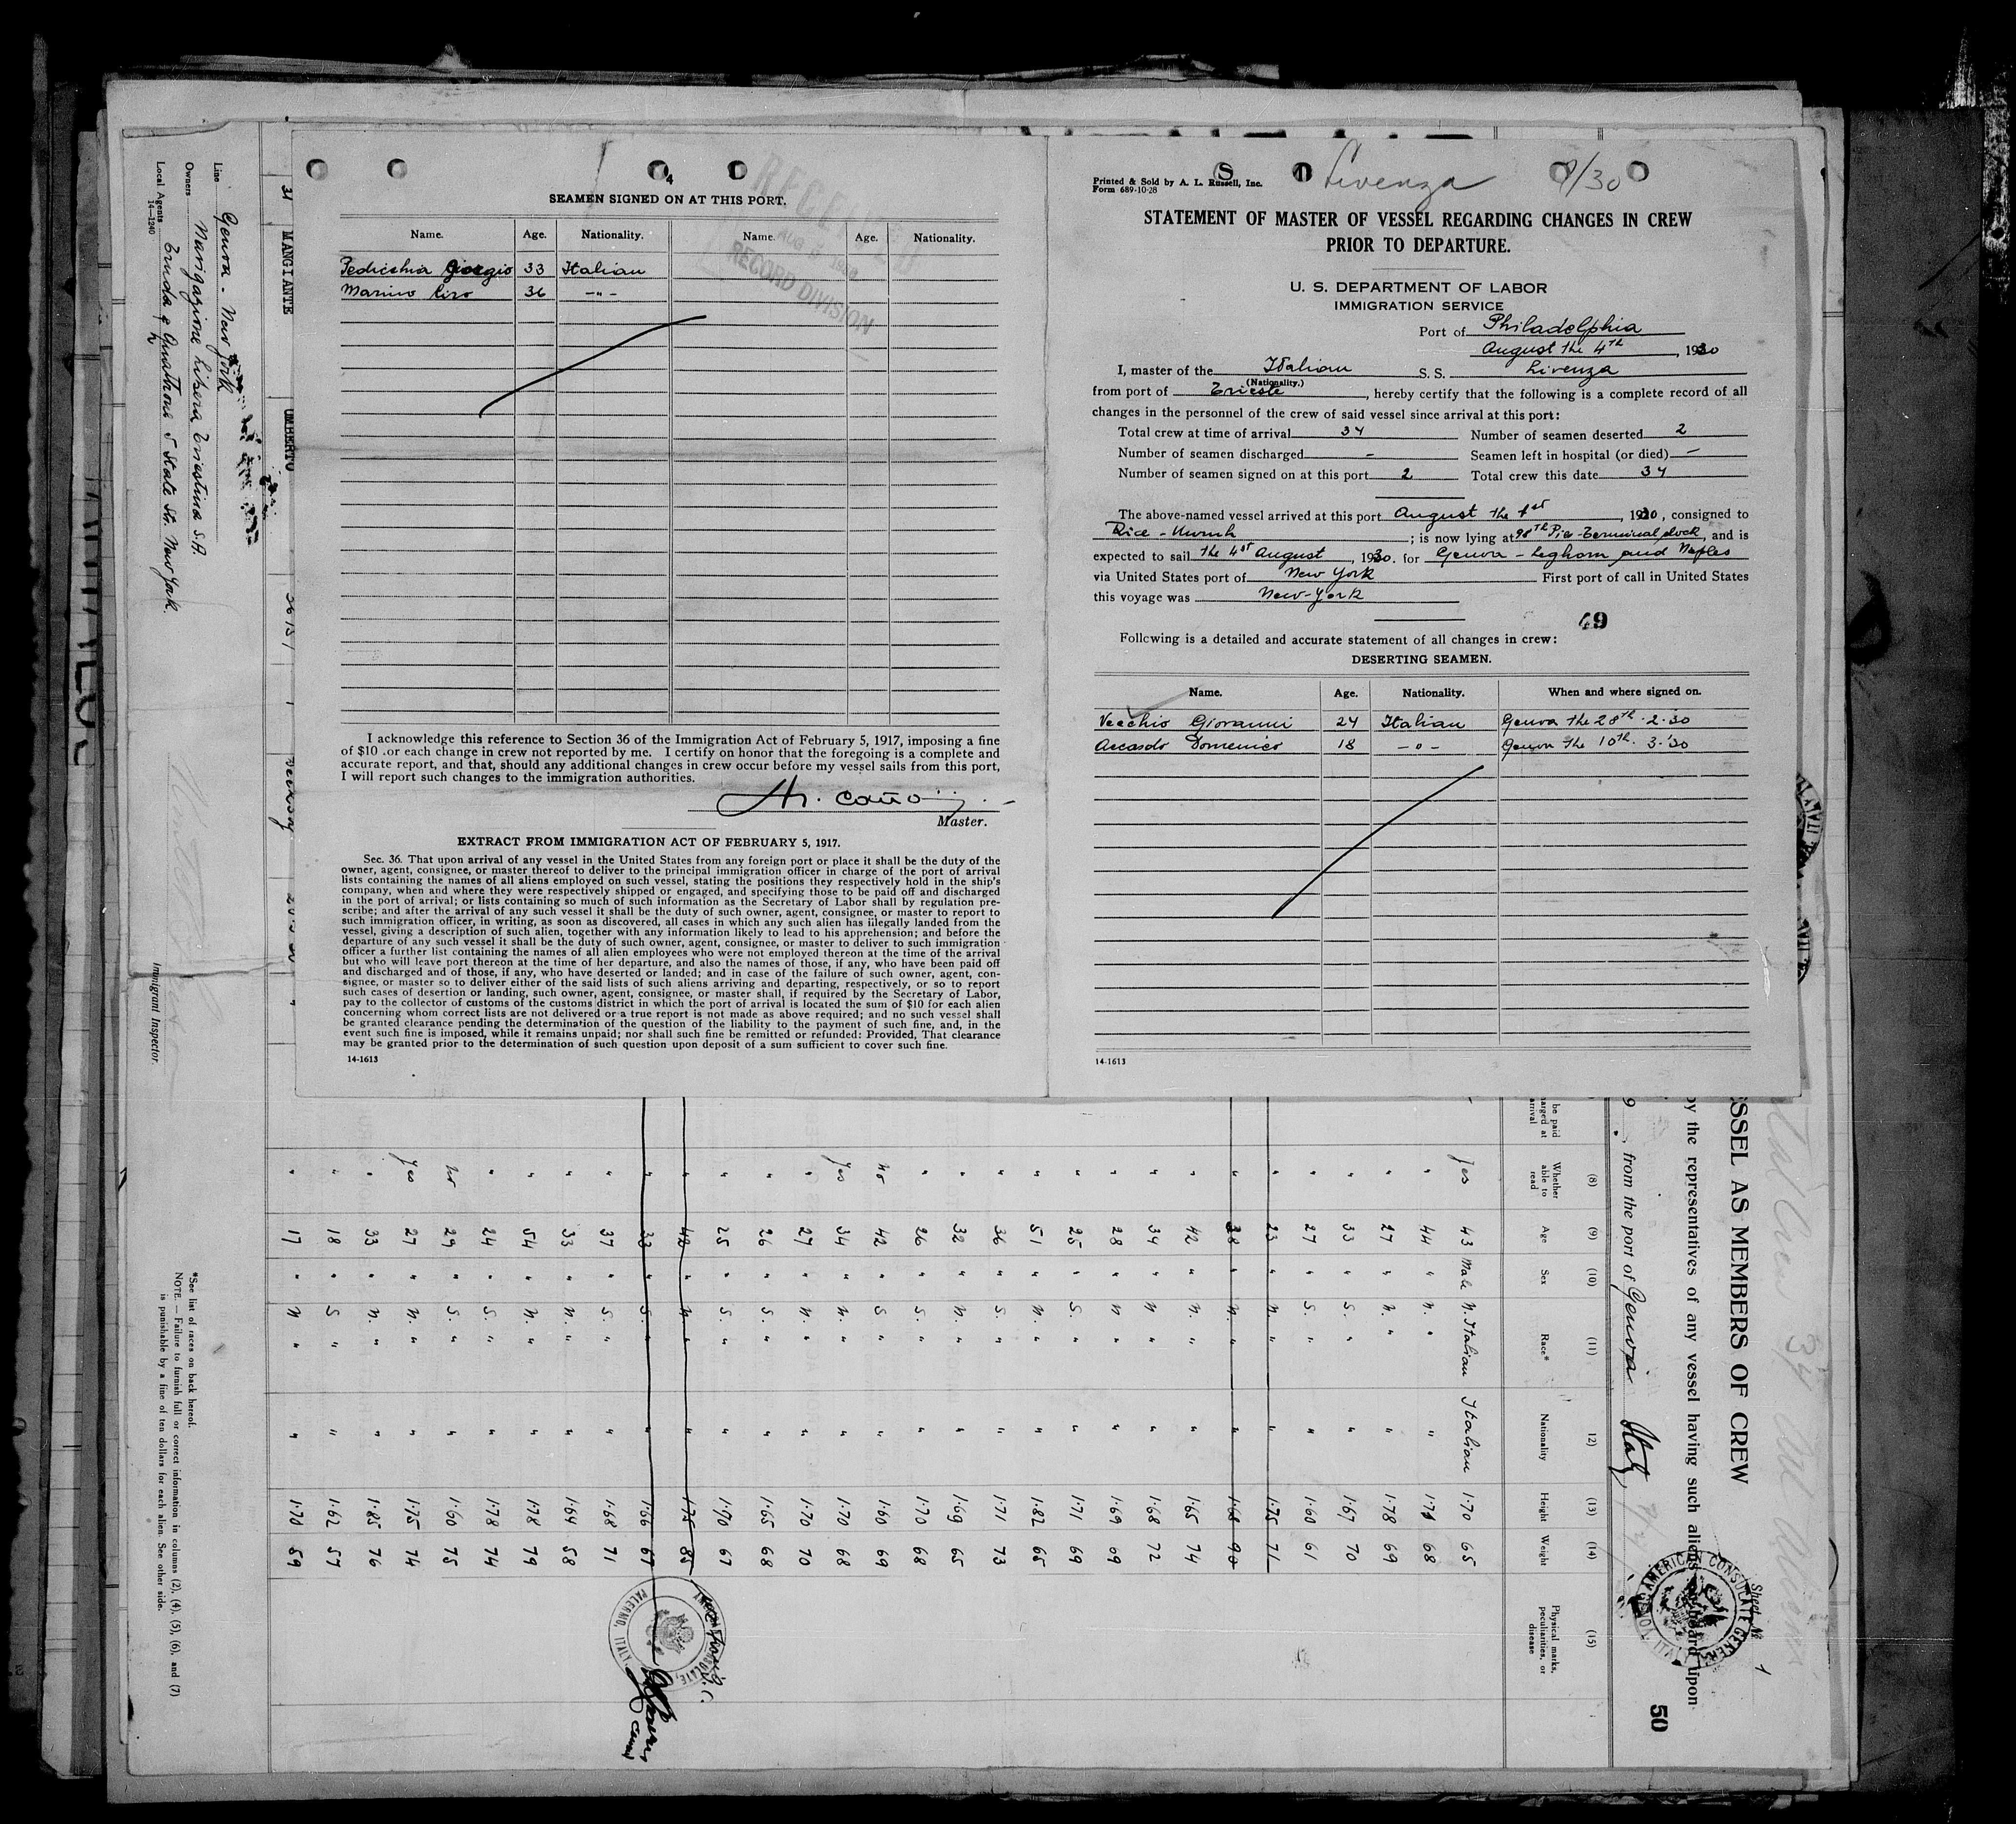 4
SEAMEN SIGNED ON AT THIS PORT.
Name. Age. Nationality. Name. Age. Nationality.
Pedicchia Giorgio 33 Italian
Marino Ciro 36 -"-
RECEIVED
AUG
RECORD DIVISION
I acknowledge this reference to Section 36 of the Immigration Act of February 5, 1917, imposing a fine
of $10 .or each change in crew not reported by me. I certify on honor that the foregoing is a complete and
accurate report, and that, should any additional changes in crew occur before my vessel sails from this port,
I will report such changes to the immigration authorities.
Master.
EXTRACT FROM IMMIGRATION ACT OF FEBRUARY 5, 1917.
Sec. 36. That upon arrival of any vessel in the United States from any foreign port or place it shall be the duty of the
owner, agent, consignee, or master thereof to deliver to the principal immigration officer in charge of the port of arrival
lists containing the names of all aliens employed on such vessel, stating the positions they respectively hold in the ship's
company, when and where they were respectively shipped or engaged, and specifying those to be paid off and discharged
in the port of arrival; or lists containing so much of such information as the Secretary of Labor shall by regulation pre-
scribe; and after the arrival of any such vessel it shall be the duty of such owner, agent, consignee, or master to report to
such immigration officer, in writing, as soon as discovered, all cases in which any such alien has illegally landed from the
vessel, giving a description of such alien, together with any information likely to lead to his apprehension; and before the
departure of any such vessel it shall be the duty of such owner, agent, consignee, or master to deliver to such immigration
officer a further list containing the names of all alien employees who were not employed thereon at the time of the arrival
but who will leave port thereon at the time of her departure, and also the names of those, if any, who have been paid off
and discharged and of those, if any, who have deserted or landed; and in case of the failure of such owner, agent, con-
signee, or master so to deliver either of the said lists of such aliens arriving and departing, respectively, or so to report
such cases of desertion or landing, such owner, agent, consignee, or master shall, if required by the Secretary of Labor,
pay to the collector of customs of the customs district in which the port of arrival is located the sum of $10 for each alien
concerning whom correct lists are not delivered or a true report is not made as above required; and no such vessel shall
be granted clearance pending the determination of the question of the liability to the payment of such fine, and, in the
event such fine is imposed, while it remains unpaid; nor shall such fine be remitted or refunded: Provided, That clearance
may be granted prior to the determination of such question upon deposit of a sum sufficient to cover such fine.
14-1613
Printed & Sold by A. L. Russell, Inc.
Form 689-10-28
Livenza 8/30
STATEMENT OF MASTER OF VESSEL REGARDING CHANGES IN CREW
PRIOR TO DEPARTURE.
U. S. DEPARTMENT OF LABOR
IMMIGRATION SERVICE
Port of Philadelphia
August the 4th, 1930
I, master of the Italian S. S. Livenza
(Nationality.)
from port of Trieste, hereby certify that the following is a complete record of all
changes in the personnel of the crew of said vessel since arrival at this port:
Total crew at time of arrival 34 Number of seamen deserted 2
Number of seamen discharged - Seamen left in hospital (or died) -
Number of seamen signed on at this port 2 Total crew this date 34
The above-named vessel arrived at this port August the 1st, 1930, consigned to
Rice - ; is now lying at 98th Pier - Terminal dock, and is
expected to sail the 4st August, 1930. for Genova - Leghorn and Naples
via United States port of New York First port of call in United States
this voyage was New-York
49
Following is a detailed and accurate statement of all changes in crew:
DESERTING SEAMEN.
Name. Age. Nationality. When and where signed on.
Vecchio Giovanni 24 Italian Genva the 28th. 2. 30
Accardo Domenico 18 -"- Genva the 10th. 3.'30
14-1613
Line Genva - New York
Owners Navigazione Libera Triestina S.A.
Local Agents 5 State St. New York.
14—1240
Immigrant Inspector.
31 MANGIANTE UMBERTO
*See list of races on back hereof.
NOTE. — Failure to furnish full or correct information in columns (2), (4), (5), (6), and (7)
is punishable by a fine of ten dollars for each alien. See other side.
SSEL AS MEMBERS OF CREW
by the representatives of any vessel having such aliens on board upon
9 , from the port of Genva Italy
Sheet No 1
50
AMERICAN CONSULATE GENERAL
(8) (9) (10) (11) 12) (13) (14) (15)
Whether able to read Age Sex Race* Nationality Height Weight Physical marks, peculiarities, or disease
Yes 43 Male N. Italian Italian 1.70 65
" 44 " N. " " 1.71 68
" 27 " N. " " 1.78 69
" 33 " S. " " 1.67 70
" 27 " S. " " 1.60 61
" 23 " N. " " 1.75 71
" 38 " N. " " 1.68 90
" 42 " N. " " 1.65 74
" 34 " N " " 1.68 72
" 28 " N " " 1.69 69
" 25 " S. " " 1.71 69
" 51 " N. " " 1.82 65
" 36 " S. " " 1.71 73
" 32 " N. " " 1.69 65
" 26 " S. " " 1.70 68
No 42 " S " " 1.60 69
Yes 34 " N. " " 1.70 68
" 27 " N. " " 1.70 70
" 26 " S. " " 1.65 68
" 25 " S. " " 1.70 67
" 42 " N " " 1.75 85
" 33 " S. " " 1.66 67
" 37 " S. " " 1.68 71
" 33 " N. " " 1.64 58
" 54 " N. " " 1.78 79
" 24 " S. " " 1.78 74
No 29 " S. " " 1.60 75
Yes 27 " N. " " 1.75 74
" 33 " N. " " 1.85 76
" 18 " S " " 1.62 57
" 17 " N " " 1.70 59
PALERMO, ITALY